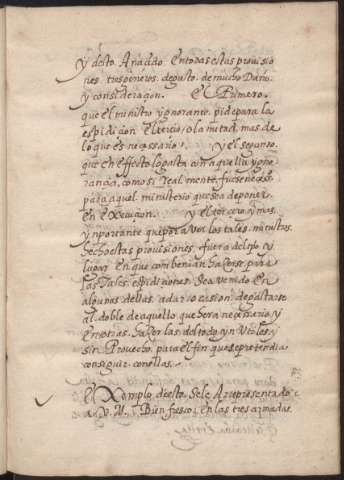 y desto Añacido. En todas estas provisio
nes. tres generos. de gusto. de mucho Daño.
y consideraçion. El Primero.
que el ministro ygnorante. pide para la
espidiçion. El terçio, o la mitad, mas de
lo que es neçessario. y el segundo.
que en effecto lo gasta con aquella ygno
rançia, como si Real mente. fuese neçessº
para aquel. ministerio que se a de poner
en Execuçion. y el terçero y mas
ynportante que por aver los tales. ministros.
hecho estas provisiones. fuera del tpo y
lugar. En que combenian hazerse. para
las tales. espidiçiones. Se a venido En
algunas dellas. a dar ocasion. de gastarse
al doble de aquello que hera neçessario y
en otras. hazerlas del todo ynutiles y
sin Provecho. para el fin que se pretendia
conseguir con ellas.
El Exemplo. desto. se le A representado
a. V. M. Bien fresco, en las tres armadas.